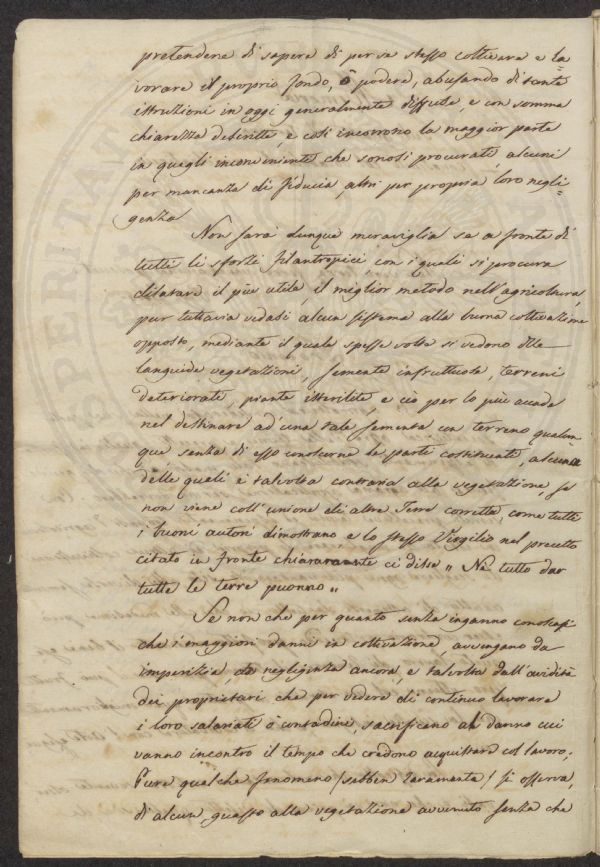 pretendere di sapere di per se stesso coltivare e la=
vorare il proprio fondo, ò podere, abusando di tante
istruzioni in oggi generalmente diffuse, e con somma
chiarezza descritte, e così incorrono la maggior parte
in quegli inconvenienti che sonosi procurati alcuni
per mancanza di fiducia, altri per propria loro negli=
genza
Non sarà dunque meraviglia se a fronte di
tutti li sforzi filantropici, con i quali si procura
dilatare il più utile, il miglior metodo nell'agricoltura,
pur tuttavia vedasi alcun sistema alla buona coltivazione
opposto, mediante il quale spesse volte si vedono delle
languide vegetazioni, semente infruttuose, terreni
deteriorati, piante isterilite, e ciò per lo più accade
nel destinare ad una tale sementa un terreno qualun
que senza di esso conoscerne le parti costituenti, alcuna
delle quali è talvolta contraria alla vegetazione, se
non viene coll'unione di altre Terre corretta, come tutti
i buoni autori dimostrano e lo stesso Virgilio nel precetto
citato in fronte chiaramente ci disse „ Nè tutto dar
tutte le terre puonno „
Se non che per quanto senza inganno conoscasi
che i maggiori danni in coltivazione, avvengano da
imperizia, da negligenza ancora, e talvolta dall'avidità
dei proprietari che per vedere di continuo lavorare
i loro salariati ò contadini, sacrificano al danno cui
vanno incontro il tempo che credono acquistare col lavoro;
Pure qualche fenomeno (sebben raramente) si osserva,
di alcun guasto alla vegetazione avvenuto senza che